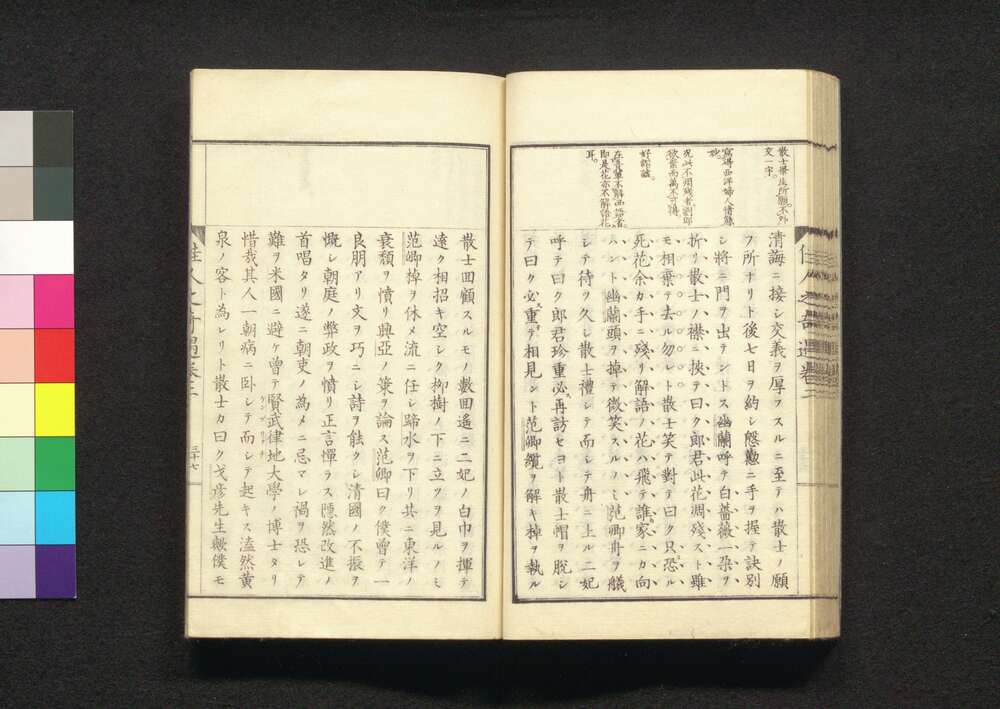 散士畢生所願不外
交一字。
寫得西洋婦人情態
妙。
好詐謔
耳。
清誨ニ接シ交義ヲ厚フスルニ至テハ散士ノ願
フ所ナリト後七日ヲ約シ慇懃ニ手ヲ握テ訣別
シ將ニ門ヲ出テントス幽蘭呼テ白薔薇一朶ヲ
折リ散士ノ襟ニ挾テ曰ク郎君此花凋殘スト雖
モ相棄テ去ル勿レト散士笑テ對テ曰ク只恐ル
死花余カ手ニ殘リ解語ノ花ハ飛テ誰家ニカ向
ハントト幽蘭頭ヲ掉テ微笑スルノミ范卿舟ヲ艤
シテ待ツ久シ散士禮シテ而シテ舟ニ上ル二妃
呼テ曰ク郎君珍重必再訪セヨト散士帽ヲ脱シ
テ曰ク必重テ相見ント范卿纜ヲ解キ棹ヲ執ル
佳人之奇遇卷二
散士回顧スルモノ數回遙ニ二妃ノ白巾ヲ揮テ
遠ク相招キ空シク柳樹ノ下ニ立ツヲ見ルノミ
范卿棹ヲ休メ流ニ任シ蹄水ヲ下リ其ニ東洋ノ
衰頽ヲ憤リ興亞ノ策ヲ論ス范卿曰ク僕曾テ一
良朋アリ文ヲ巧ニシ詩ヲ能クシ清國ノ不振ヲ
慨シ朝庭ノ弊政ヲ憤リ正言憚ラス隱然改進ノ
首唱タリ遂ニ朝吏ノ為メニ忌マレ禍ヲ恐レテ
難ヲ米國ニ避ケ曾テ賢武律地大學ノ博士タリ
惜哉其人一朝病ニ卧シテ而シテ起キス溘然黄
泉ノ客ト為レリト散士カ曰ク戈彦先生歟僕モ
佳人之奇遇卷二
三十七